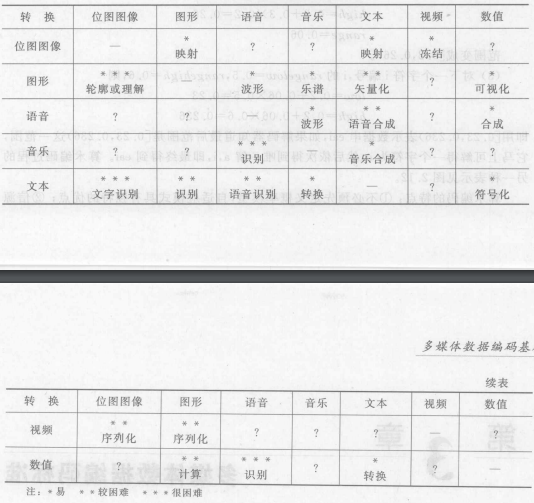 转 换 位图图像 图形 语音 音乐 文本 视频 数值
位图图像 — * 映射 ? ? * * 映射 * 冻结 ?
图形 * * * 轮廓或理解 — * 波形 乐谱 * * 矢量化 ? * 可视化
语音 ? ? — * 波形 * * 语音合成 ? * 合成
音乐 ? ? * * * 识别 — * 音乐合成 ? ?
文本 * * 文字识别 * * 识别 * * 语音识别 * 转换 — ? * 符号化
多媒体数据编码基
续表
转 换 位图图像 图形 语音 音乐 文本 视频 数值
视频 * * 序列化 * * 序列化 ? ? ? — ?
数值 ? * * 计算 * * * 识别 ? * 转换 ? —
注：* 易 * * 较困难 * * * 很困难